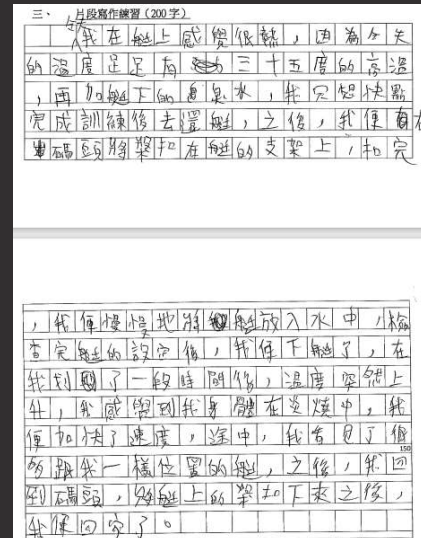 三、 片段寫作練習（200字）
今天我在艇上感覺很熱，因為今天
的溫度足足有三十五度的高溫
，再加艇下的臭水，我只想快點
完成訓練後去還艇，之後，我便在
碼頭將槳扣在艇的支架上，扣完
，我便慢慢地將艇放入水中，檢
查完艇的設定後，我便下艇了，在
我划了一段時間後，溫度突然上
升，我感覺到我身體在炎燒中，我
便加快了速度，途中，我看見了很
多跟我一樣位置的艇，之後，我回
150
到碼頭，將艇上的槳扣下來之後，
我便回家了。